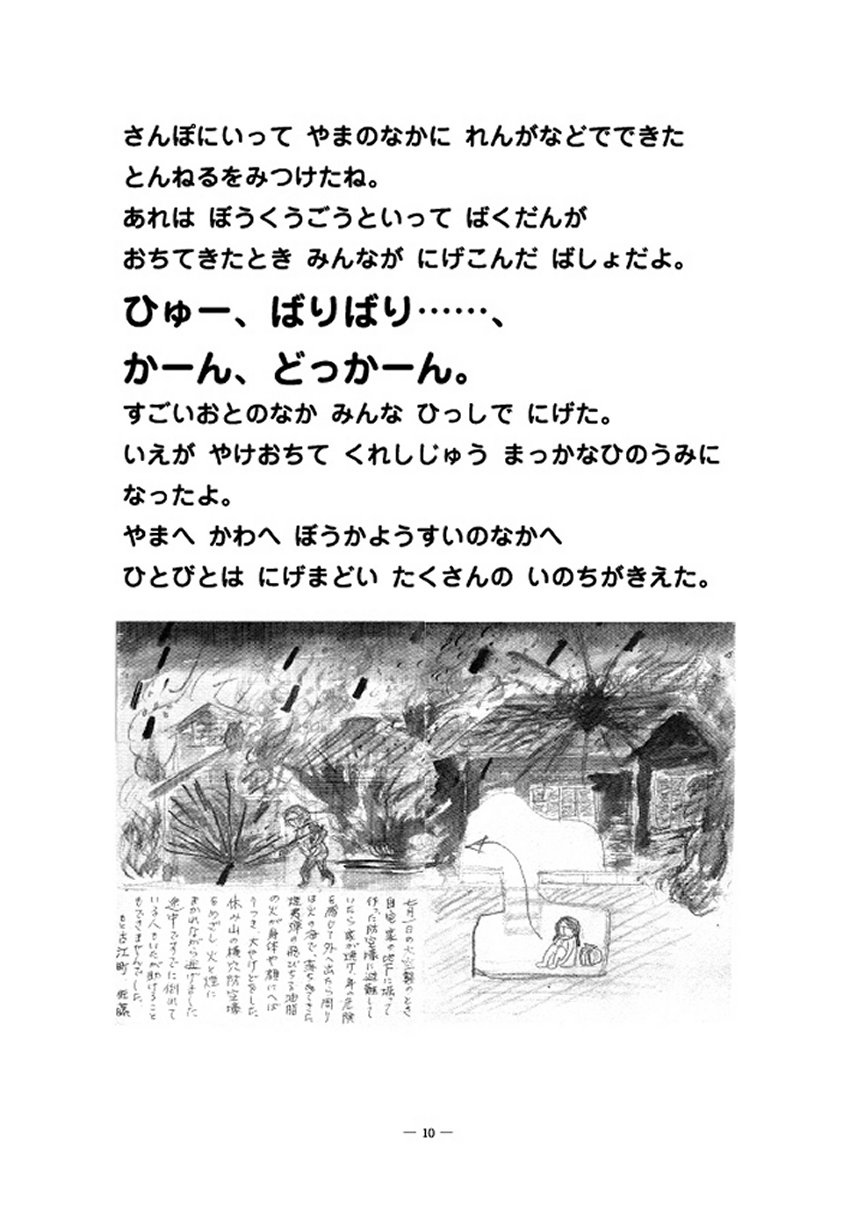 さんぽにいって やまのなかに れんがなどでできた
とんねるをみつけたね。
あれは ぼうくうごうといって ばくだんが
おちてきたとき みんなが にげこんだ ばしょだよ。
ひゅー、ばりばり……、
かーん、どっかーん。
すごいおとのなか みんな ひっしで にげた。
いえが やけおちて くれしじゅう まっかなひのうみに
なったよ。
やまへ かわへ ぼうかようすいのなかへ
ひとびとは にげまどい たくさんの いのちがきえた。
七月一日の大空襲のとき
自宅家の地下に掘って
作った防空壕に避難して
いたら家が焼け、身の危険
を感じて外へ出たら周り
は火の海で、落ちてきた
焼夷弾の飛びちる油脂
の火が身体や顔にへば
りつき、大やけどをした。
休み山の横穴防空壕
をめざし火と煙に
まかれながら逃げました
途中ですでに倒れて
いる人もいたが助けること
もできませんでした。
もと古江町 佐藤
— 10 —